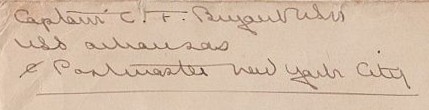 Captain C. F. Bryant USN
USS Arkansas
c Postmaster New York City